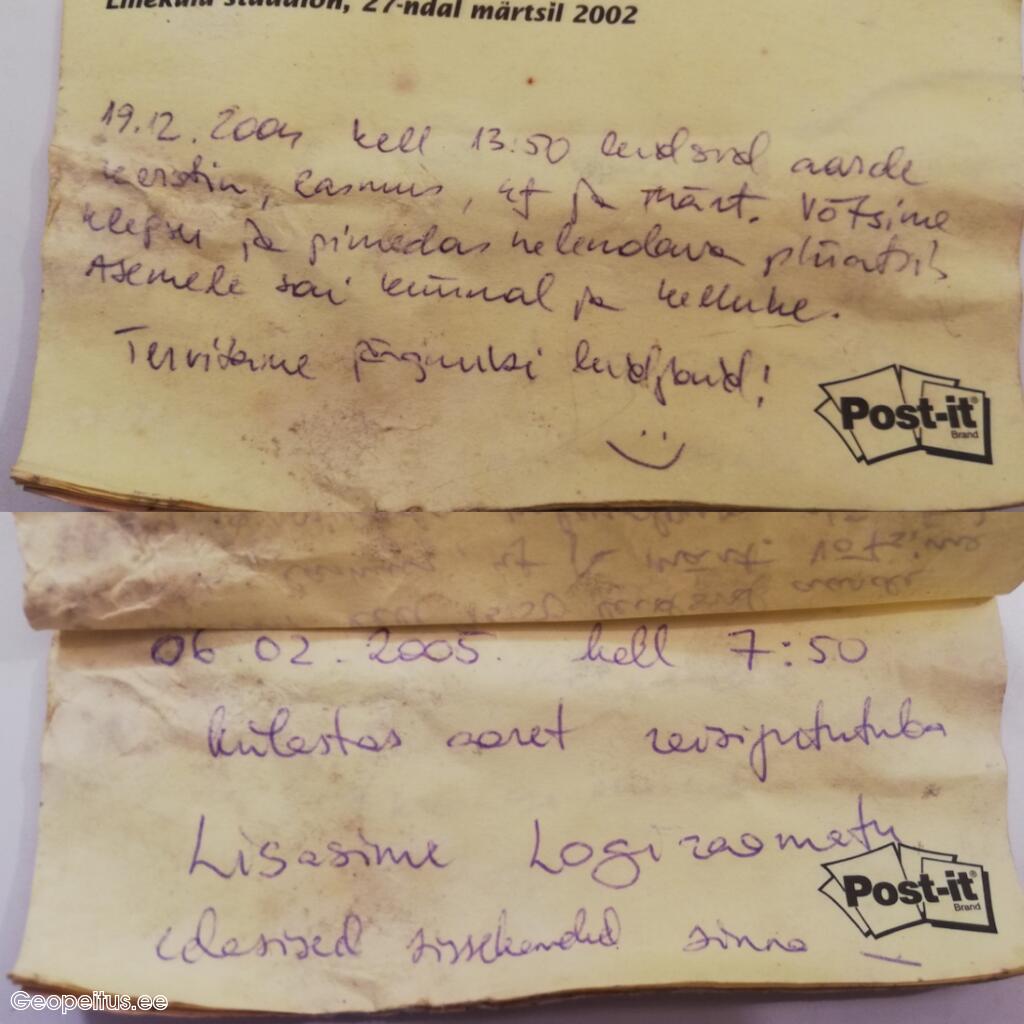 Lilleküla staadion, 27-ndal märtsil 2002
19.12.2004 kell 13:50 leidsid aarde
Kerstin, Rasmus, ja Märt. Võtsime
ja pimedas helendava pliiatsi.
Asemele sai küünal ja kelluke.
Tervitame järgmisi leidjaid!
Post-it®
Brand
06.02.2005. kell 7:50
külastas aaret reisiputukuba
Lisasime Logiraamatu
edasised sissekanded sinna
Post-it®
Brand
Geopeitus.ee